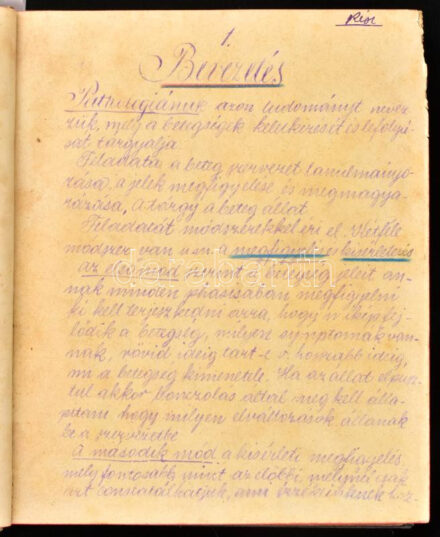 1.
Bevezetés
Pathologiának azon tudományt nevez-
zük, mely a betegségek keletkezését és lefolyá-
sát tárgyalja.
Feladata a beteg szervezet tanulmányo-
zása, a jelek megfigyelése és megmagya-
rázása, a tárgy a beteg állat.
Feladatát módszerekkel éri el. Kétféle
módszer van u.m. a megfigyelés és kísérletezés
Az első mód szerint a betegség jeleit an-
nak minden phasisában megfigyelni
ki kell terjeszkedni arra, hogy mikép fej-
lődik a betegség, milyen symptomák van-
nak, rövid ideig tart-e v. hosszabb ideig,
mi a betegség kimenetele. Ha az állat elpusz-
tul akkor bonczolás által meg kell álla-
pítani hogy milyen elváltozások állanak
be a szervezetbe
A második mód a kísérleti megfigyelés
mely fontosabb mint az előbbi, melynél csak
azt constatálhatjuk, ami